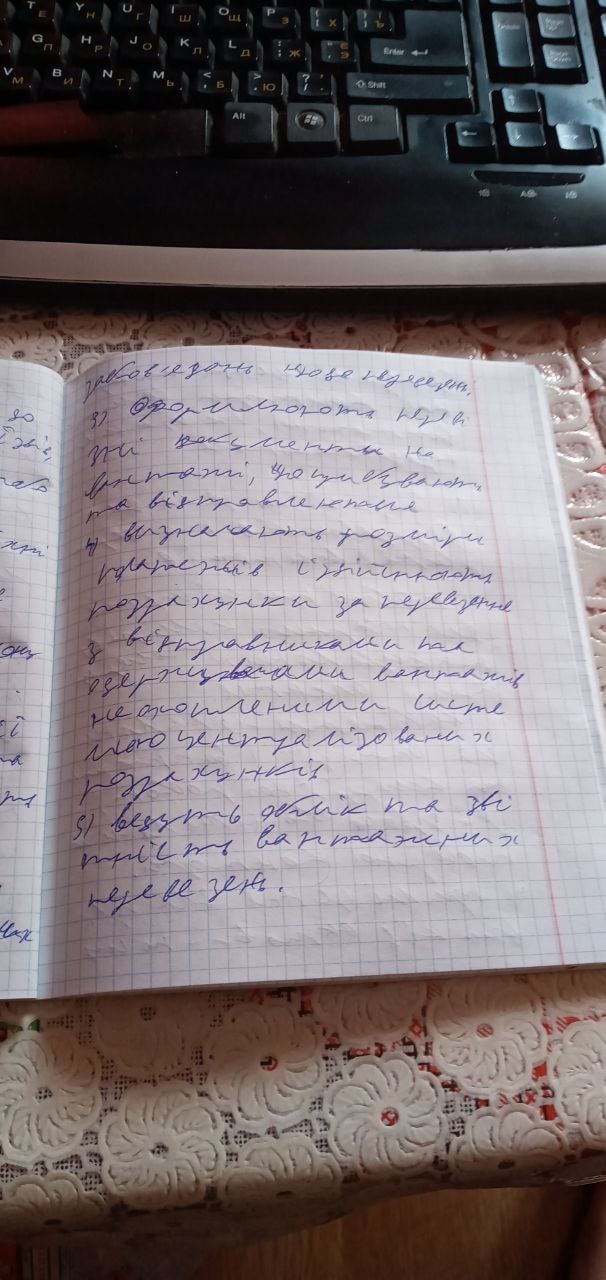 T Е Y Н U Г I Ш O Щ P З { [ Х } ] Ї
G П H Р J О K Л L Д : ; Ж " ' Є Э Enter
V М B И N Т M Ь < , Б > . Ю ? / Shift
Alt Ctrl
Delete
зобов'язань щодо перевезень.
3) Оформлюють переві
зні документи на
вантажі, що прибувають
та відправлення
4) визначають розміри
платежів і здійснюють
розрахунки за перевезення
з відправниками та
одержувачами вантажів
неохопленими систе
мою центуалізованих
розрахунків
5) ведуть облік та зві
тність вантажних
перевезень.
до